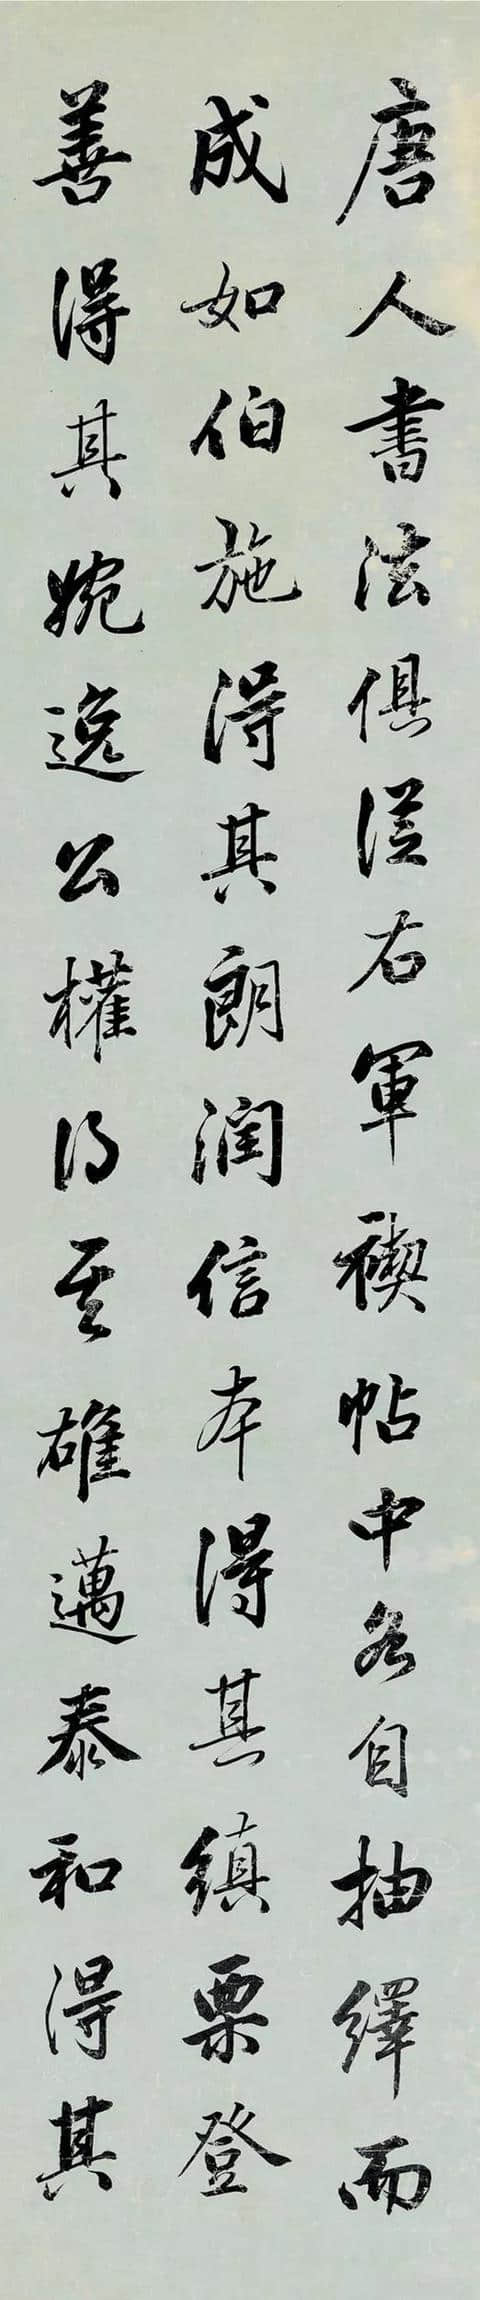 唐人書法俱從右軍禊帖中各自抽繹而
成如伯施得其朗潤信本得其縝栗登
善得其婉逸公權得其雄邁泰和得其